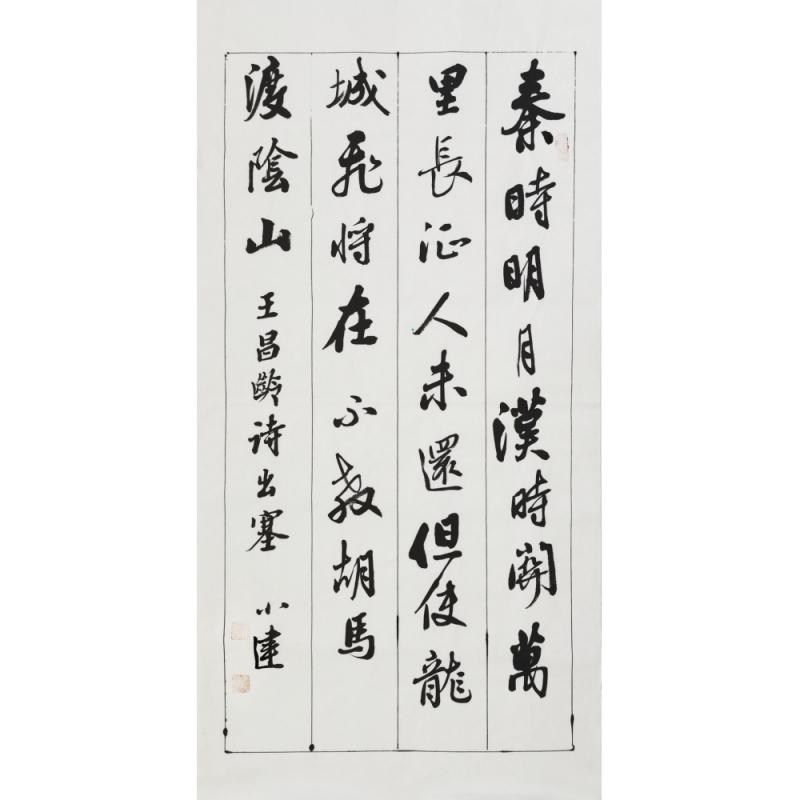 秦時明月漢時關萬
里長征人未還但使龍
城飛将在不教胡馬
渡陰山 王昌齡诗出塞 小達